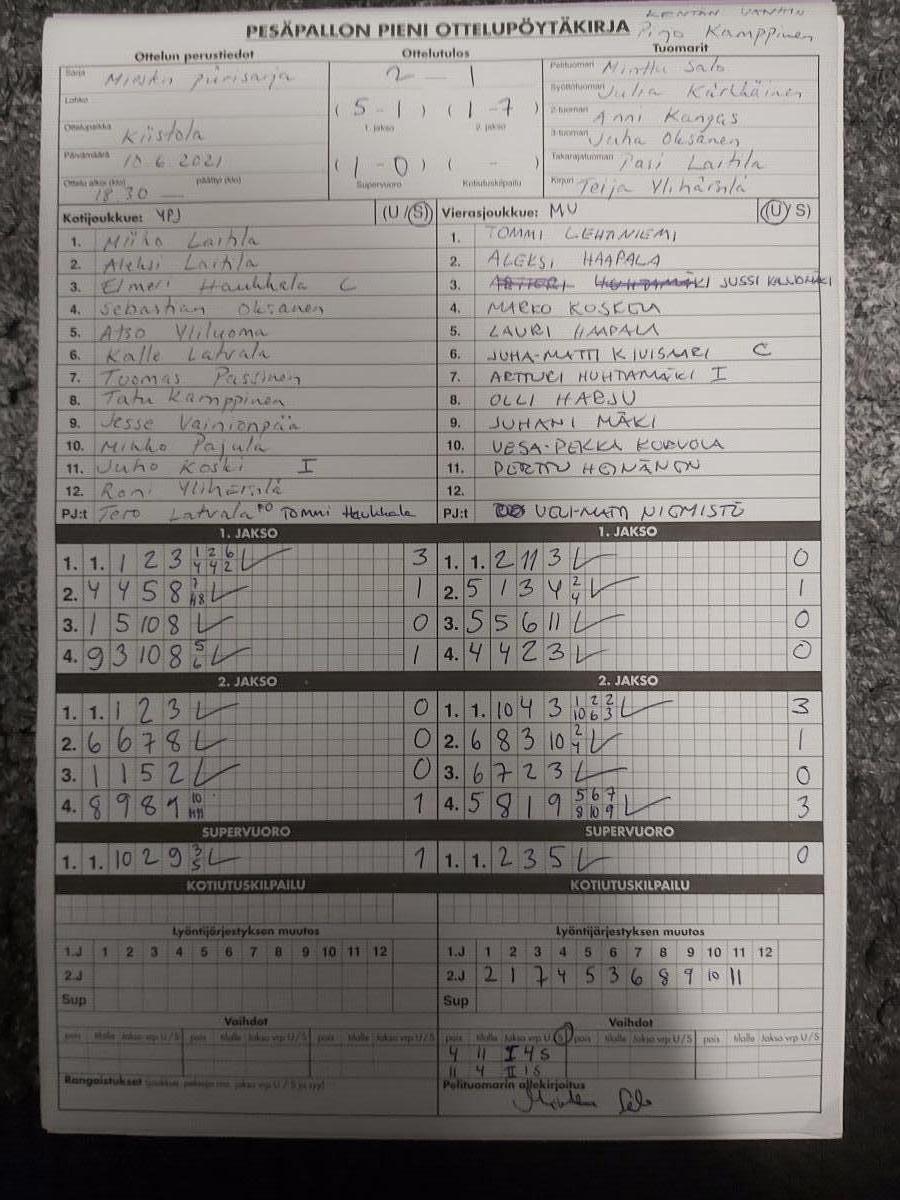 KENTÄN VANHIN
PESÄPALLON PIENI OTTELUPÖYTÄKIRJA Pirjo Kamppinen
Ottelun perustiedot Ottelutulos Tuomarit
Sarja Miesten piirisarja 2 - 1 Pelituomari Minttu Salo
Lohko (5 - 1) (1 - 7) Syöttötuomari Julia Kärkkäinen
1. jakso 2. jakso 2-tuomari Anni Kangas
Ottelupaikka Kiistola 3-tuomari Juha Oksanen
Päivämäärä 10.6.2021 (1 - 0) ( - ) Takarajatuomari Pasi Laitila
Ottelu alkoi (klo) päättyi (klo) Supervuoro Kotiutuskilpailu Kirjuri Teija Ylihärsilä
18.30 —
Kotijoukkue: YPJ (U/S) Vierasjoukkue: MV (U/S)
1. Miiko Laitila 1. TOMMI LEHTINIEMI
2. Aleksi Laitila 2. ALEKSI HAAPALA
3. Elmeri Haukkala C 3. ARTTURI HUHTAMÄKI JUSSI
4. Sebastian Oksanen 4. MARKO KOSKELA
5. Atso Yliluoma 5. LAURI HAAPALA
6. Kalle Latvala 6. JUHA-MATTI KIVISAARI C
7. Tuomas Passinen 7. ARTTURI HUHTAMÄKI I
8. Tatu Kamppinen 8. OLLI HARJU
9. Jesse Vainionpää 9. JUHANI MÄKI
10. Mikko Pajula 10. VESA-PEKKA KORVOLA
11. Juho Koski I 11. PERTTU HEINÄNEN
12. Roni Ylihärsilä 12.
PJ:t Tero Latvala Tommi Haukkala PJ:t VELI-MATTI NIEMISTÖ
1. JAKSO 1. JAKSO
1. 1. 1 2 3 1 2 6 3 1. 1. 2 11 3 0
4 4 2
2. 4 4 5 8 7 1 2. 5 1 3 4 2 1
4
3. 1 5 10 8 0 3. 5 5 6 11 0
4. 9 3 10 8 5 1 4. 4 4 2 3 0
6
2. JAKSO 2. JAKSO
1. 1. 1 2 3 0 1. 1. 10 4 3 1 2 2 3
10 6 3
2. 6 6 7 8 0 2. 6 8 3 10 2 1
4
3. 1 1 5 2 0 3. 6 7 2 3 0
4. 8 9 8 9 10 1 4. 5 8 1 9 5 6 7 3
8 10 9
SUPERVUORO SUPERVUORO
1. 1. 10 2 9 3 1 1. 1. 2 3 5 0
5
KOTIUTUSKILPAILU KOTIUTUSKILPAILU
Lyöntijärjestyksen muutos Lyöntijärjestyksen muutos
1.J 1 2 3 4 5 6 7 8 9 10 11 12 1.J 1 2 3 4 5 6 7 8 9 10 11 12
2.J 2.J 2 1 7 4 5 3 6 8 9 10 11
Sup Sup
Vaihdot Vaihdot
pois tilalle Jakso vrp U/S pois tilalle Jakso vrp U/S pois tilalle Jakso vrp U/S pois tilalle Jakso vrp U/S pois tilalle Jakso vrp U/S pois tilalle Jakso vrp U/S
4 11 I 4 S
11 4 II 1 S
Rangaistukset (joukkue, pelaaja nro, jakso vrp U/S ja syy) Pelituomarin allekirjoitus